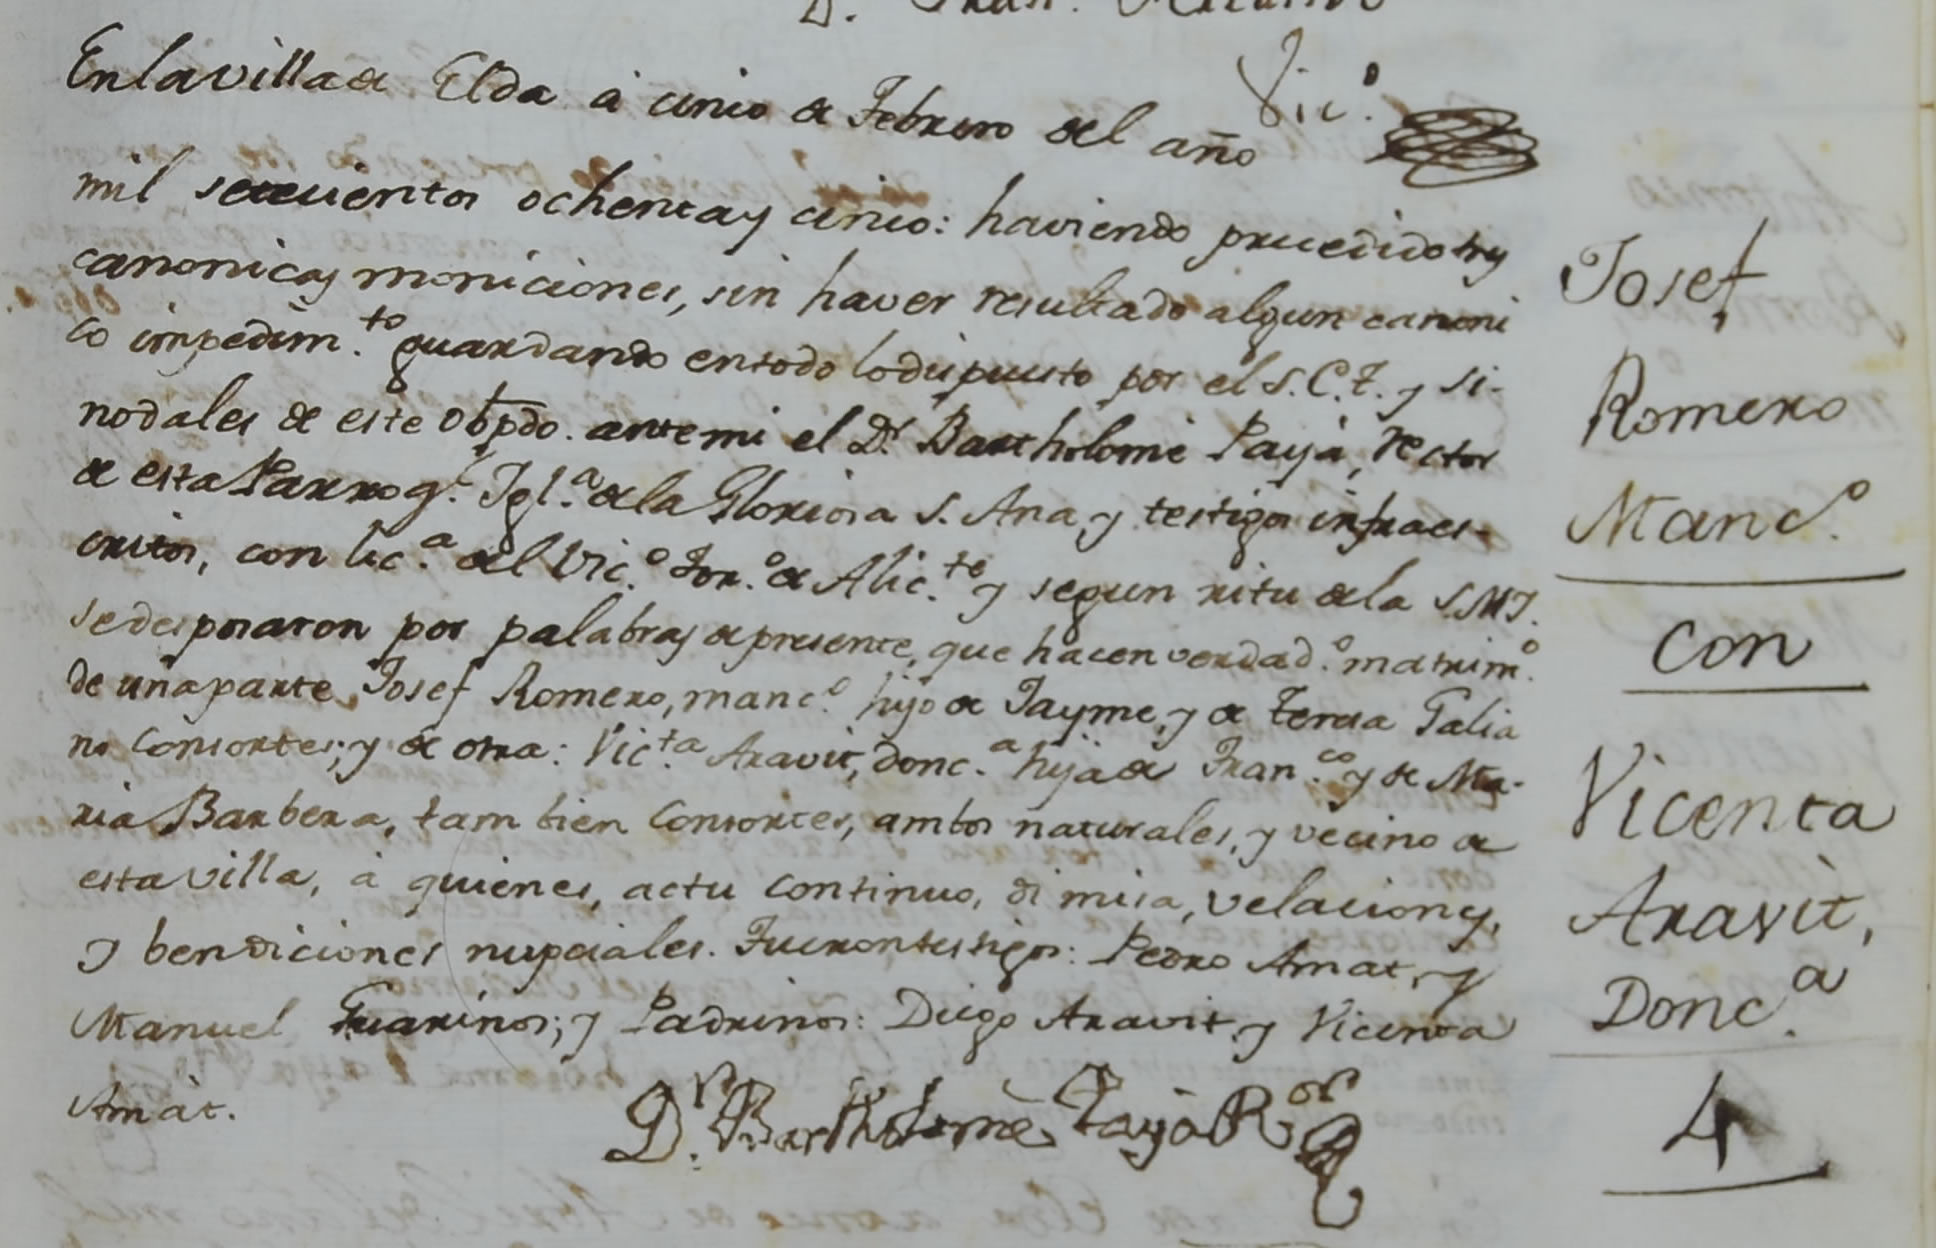 Vic.º
En la villa de Elda à cinco de Febrero del año
mil setecientos ochenta y cinco: haviendo precedido tres
canonicas moniciones, sin haver resultado algun canoni
co impedim.to guardando en todo lo dispuesto por el S.C.T. y si-
nodales de este Obpdo. ante mi el D.r Bartholomè Payà, Rector
de esta Parroq.l Igl.a de la Gloriosa S. Ana, y testigos infraes-
critos, con lic.a del Vic.º For.º de Alic.te y segun ritu de la S.M.I.
se desposaron por palabras de presente, que hacen verdad.º matrim.º
de una parte Josef Romero, manc.º hijo de Jayme, y de Teresa Galia
no Consortes; y de otra: Vic.ta Aravit, donc.a hija de Fran.co y de Ma-
ria Barbera, tambien Consortes, ambos naturales, y vecino de
esta villa, à quienes, actu continuo, di misa, velaciones,
y bendiciones nupciales. Fueron testigos: Pedro Amat, y
Manuel Guarinos; y Padrinos: Diego Aravit, y Vicenta
Amàt.
D.r Bartholomè Payà R.or
Josef
Romero
Manc.º
con
Vicenta
Aravìt,
Donc.a
4